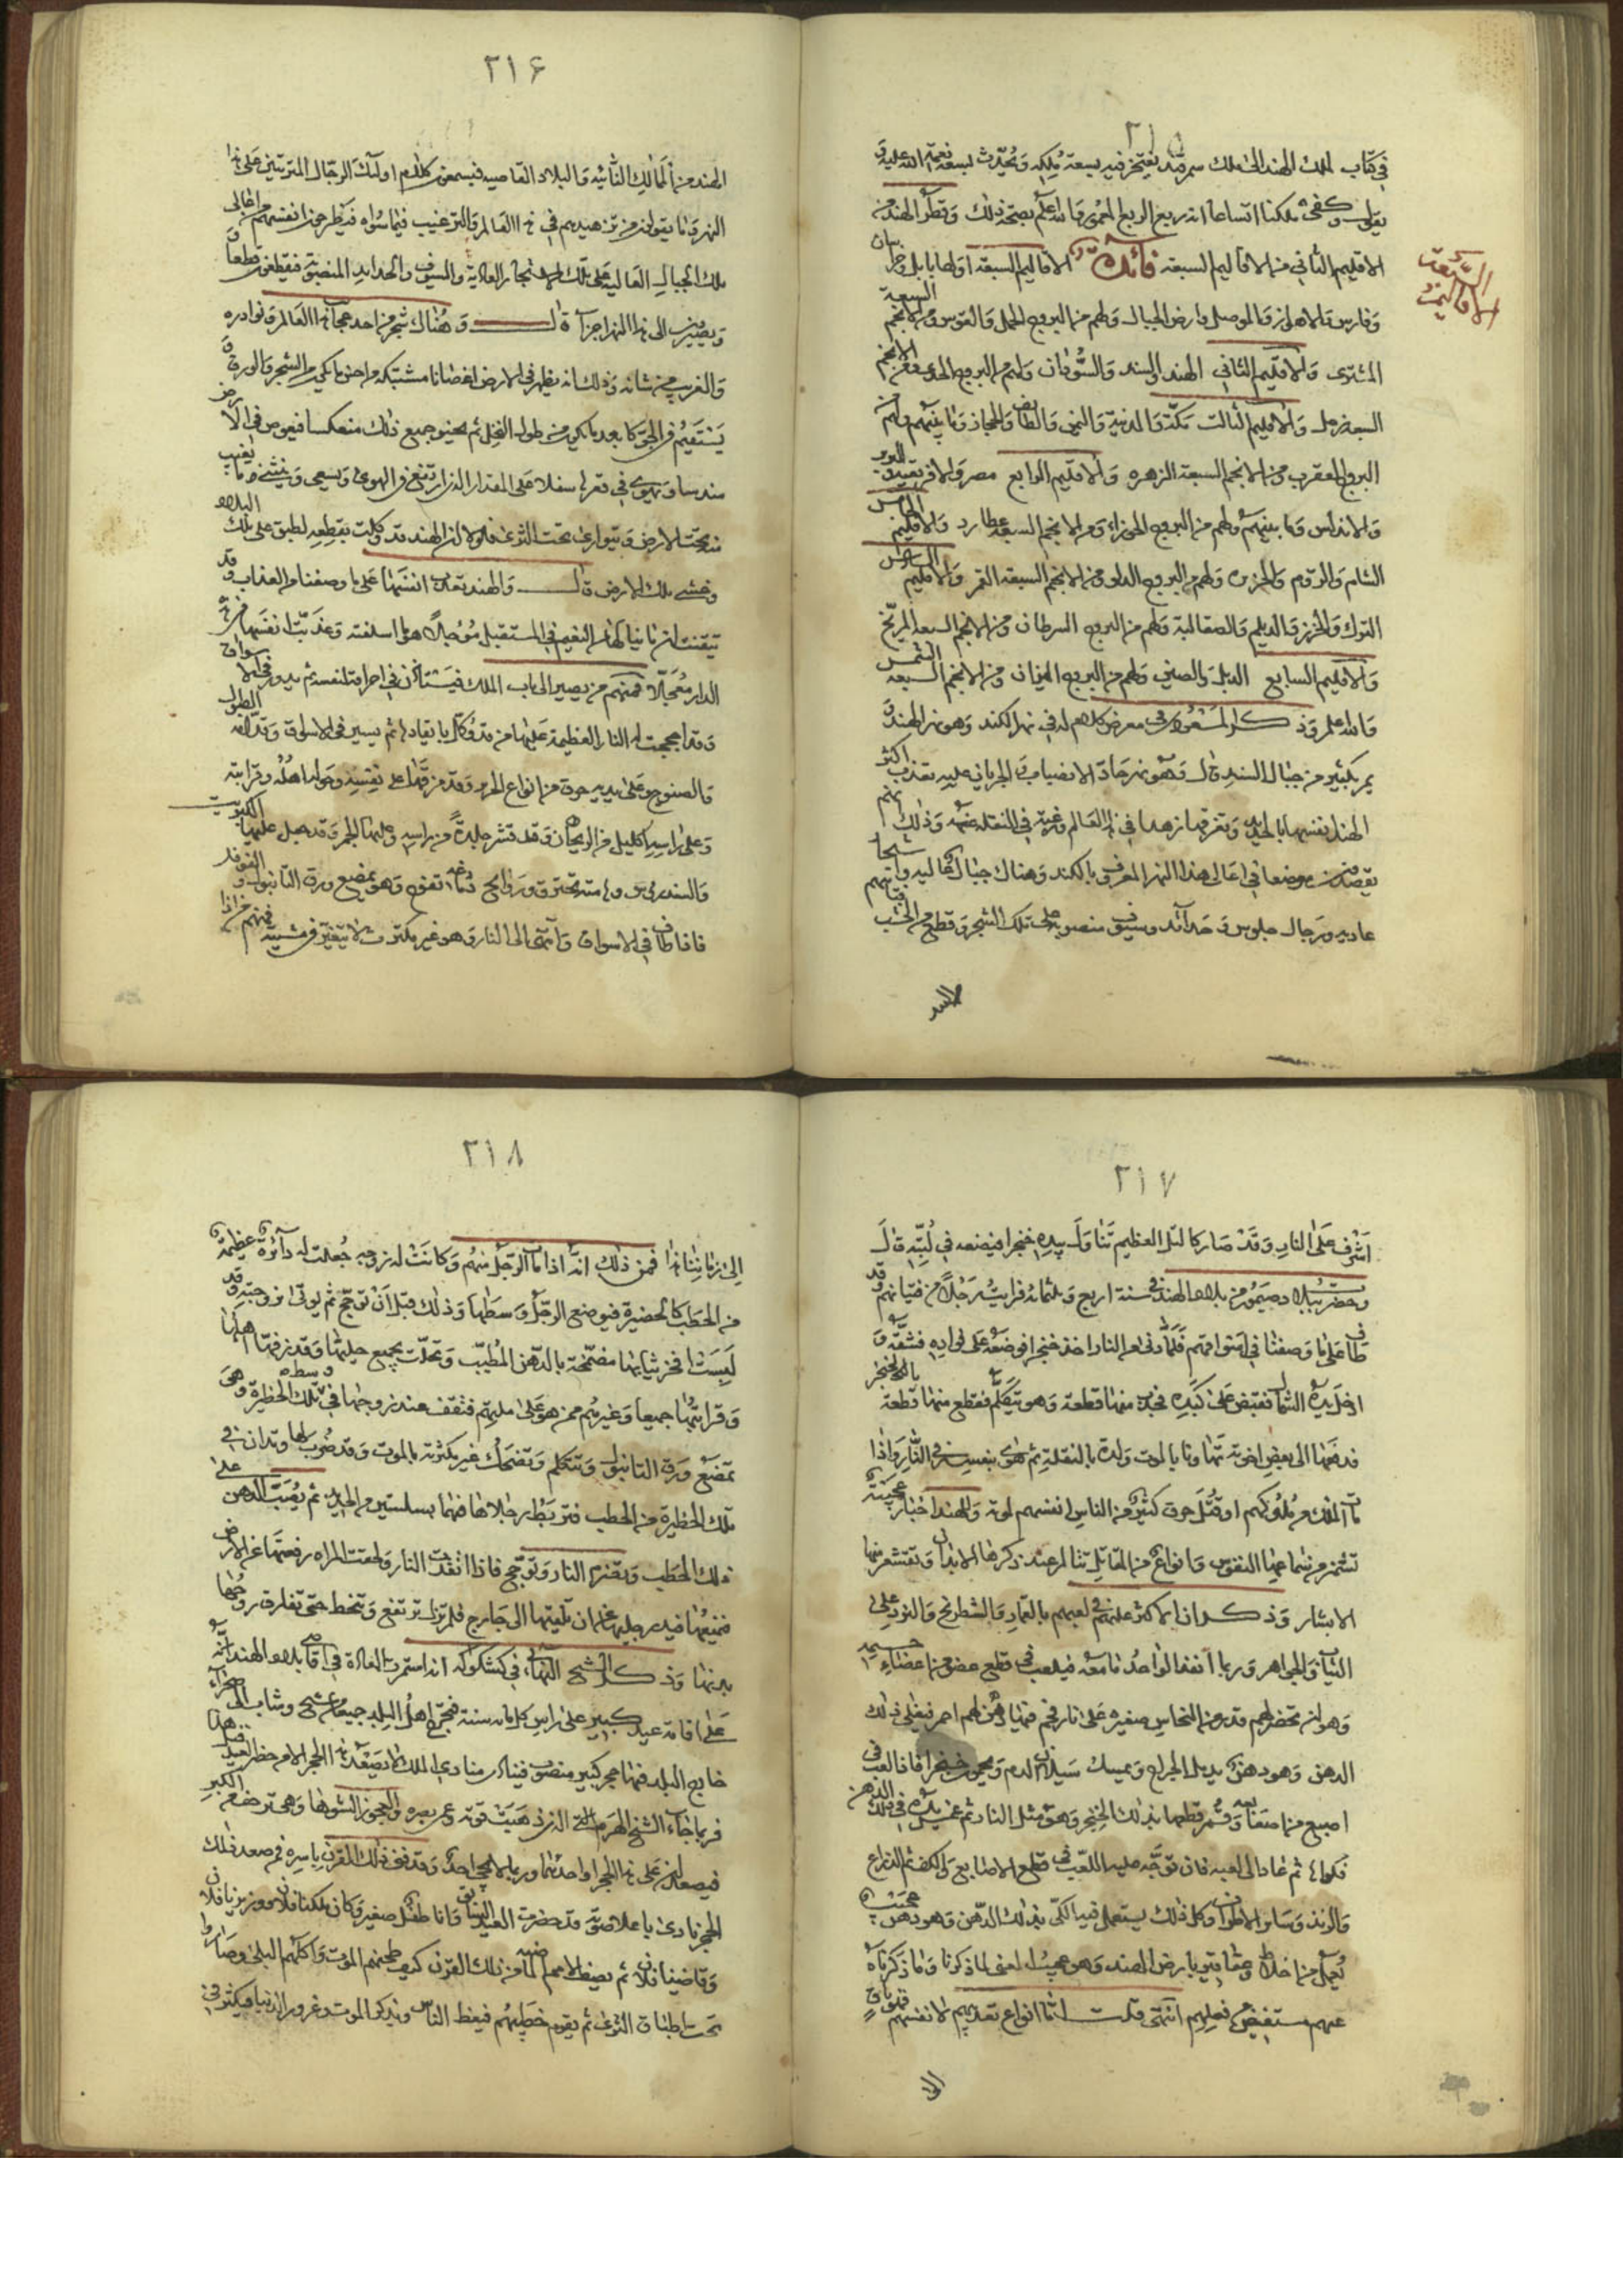 ٢١٥
في كتاب ملك الهند الى ملك سرنديب يفتخر فيه بسعة ملكه ويحدث بسعة نعمة الله عليه و
يقول وكفى بملكنا اتساعا انه ربع الربع المعمور والله اعلم بصحة ذلك وقطر الهند من
الاقليم الثاني من الاقاليم السبعة فائدة الاقاليم السبعة اولها بابل وخراسان
السبعة
الاقاليم
وفارس والاهواز والموصل وارض الجبال ولهم من البروج الحمل والقوس ومن الانجم السبعة
المشترى والاقليم الثاني الهند والسند والسودان ولهم من البروج الجدى ومن الانجم
السبعة زحل والاقليم الثالث مكة والمدينة واليمن والطائف والحجاز وما بينهم ولهم من
البروج العقرب ومن الانجم السبعة الزهره والاقليم الرابع مصر والافريقية والبربر
والاندلس وما بينهم ولهم من البروج الجوزاء ومن الانجم السبعة عطارد والاقليم الخامس
الشام والروم والجزيره ولهم من البروج الدلو ومن الانجم السبعة القمر والاقليم السادس
الترك والخزر والديلم والصقالبة ولهم من البروج السرطان ومن الانجم السبعة المريخ
والاقليم السابع الديل والصين ولهم من البروج الميزان ومن الانجم السبعة الشمس
والله اعلم وذكر المسعودى في معرض كلام له في نهر الكند وهو نهر الهند و
يمر بكثير من جبال السند قال وهو نهر حاد الانصباب والجريان عليه يعذب اكثر
الهند نفسها بالحديد وتغرقها زهدا في هذا العالم ورغبة في النقلة عنه وذلك انهم
يقصدون موضعا في اعالى هذا النهر المعروف بالكند وهناك جبال عاليه واشجار
عاديه ورجال جلوس وحدائد وسيوف منصوبة على تلك الشجر وقطع من الخشب
٢١۶
الهند من الممالك النائيه والبلاد القاصيه فيسمعون كلام اولئك الرجال المرتبين على هذا
النهر وما يقولون من تزهيدهم في هذا العالم والترغيب فيما سواه فيطرحون انفسهم من اعالى
تلك الجبال العاليه على تلك الاشجار العادية والسيوف والحدايد المنصوبة فيقطعون قطعا و
ويصيرون الى هذا النهر اجزآ قال وهناك شجر من احد عجائب هذا العالم ونوادره
والغريب من شانه وذلك انه يظهر في الارض اغصانا مشتبكه من احسن ما يكون من الشجر والورق و
يستقيم في الجو كابعد ما يكون من طول النخل ثم ينحنى جميع ذلك منعكسا فيغوص في الارض
مندسا ويهوى في قعرها سفلا على المقدار الذى ارتفع في الهوى ويسعى وينثنى وما يغيب
منه تحت الارض ويتوارى تحت الثرى فلولا ان الهند قد وكلت بقطعه لطبق على تلك البلاد
وغشى تلك الارض قال والهند تعذب انفسها على ما وصفنا من العذاب وقد
تيقنت ان ما ينالها من النعيم في المستقبل مؤجلا هو ما اسلفته وعذبت انفسها في هذه
الدار معجلا فمنهم من يصير الى باب الملك فيستاذن في احراقه لنفسه ثم يدور في الاسواق
وقد اججت له النار العظيمة عليها من قد وكل بايقادها ثم يسير في الاسواق وقدامه الطبول
والصنوج وعلى بدنه خرق من انواع الحرير وقد مزقها على نفسه وحوله اهله وقرابته
وعلى راسه اكليل من الريحان وقد قشر جلدة من راسه وعليها الجمر وقد جعل عليها الكبريت
والسندروس وهامته تحترق وروائح دماغه تفوح وهو يمضغ ورق التانبول والفوفل
فاذا طاف في الاسواق وانتهى الى النار وهو غير مكترث لا يتغير في مشيته فمنهم من اذا
٢١٧
اشرف على النار وقد صار كالتل العظيم تناول بيده خنجرا فيضعه في لبته قال
وحضرت ببلاد صيمور من بلاد الهند في سنة اربع وثلثمائه فرايت رجلا من فتيانهم وقد
طاف على ما وصفنا في اسواقهم فلما دنى من النار اخذ خنجرا فوضعه على فواده فشقه و
ادخل يده الشمال فقبض على كبده فجذب منها قطعة وهو يتكلم فقطع منها قطعة بالخنجر
فدفعها الى بعض اخوته تهاونا بالموت ولذة بالنقلة ثم هوى بنفسه في النار واذا
مات الملك من ملوكهم او قتل حرق كثير من الناس انفسهم لموته وللهند اخبار عجيبة
تشمئز من سماعها النفوس وانواع من المقاتل تتالم عند ذكرها الابدان وتقشعر منها
الابشار وذكر ان الاكثر عليهم في لعبهم بالقمار والشطرنج والنرد على
الثياب والجواهر وربما انفذ الواحد ما معه فيلعب في قطع عضو من اعضاء جسده
وهو ان تحضر لهم قدر من النحاس صغيره على نار فحم فيها دهن لهم احمر فيغلى ذلك
الدهن وهو دهن يدمل الجراح ويمسك سيلان الدم فاذا لعب في
اصبع من اصابعه وقمر قطعها بذلك الخنجر وهو مثل النار ثم غمس يده في ذلك الدهن
فكواها ثم عاد الى لعبه فان توجه عليه اللعب في قطع الاصابع والكف ثم الذراع
والزند وساير الاطراف وكل ذلك يستعمل فيه الكى بذلك الدهن وهو دهن عجيب
يعمل من اخلاط وعقاقير بارض الهند وهو عجيب المعنى لما ذكرنا وما ذكرناه
عنهم مستفيض من فعلهم انتهى قلت اما انواع تعذيبهم لانفسهم فهو باق
٢١٨
الى زماننا هذا فمن ذلك انه اذا مات الرجل منهم وكانت له زوجه جعلت له دائرة عظيمة
من الحطب كالحضيرة فيوضع الرجل في وسطها وذلك قبل ان توجج ثم يوتى بزوجته وقد
لبست افخر ثيابها مضمخة بالدهن المطيب وتحلت بجميع حليها وقد زفها اهلها
وقرابتها جميعا وغيرهم ممن هو على ملتهم فتقف عند زوجها في وسط تلك الحظيرة وهى
تمضغ ورق التانبول وتتكلم وتضحك غير مكترثه بالموت وقد ضرب لها وتدان في
تلك الحظيرة من الحطب فتربط رجلاها فيهما بسلسلتين من الحديد ثم يصب الدهن على
ذلك الحطب وتضرم النار وتوجج فاذا اتقدت النار ولحقت المراه رفعتها عن الارض
فتمنعها قيد رجليها عن ان تلقيها الى خارج فلم تزل ترتفع وتنحط حتى تفارق روحها
بدنها وذكر الشيخ البهائى في كشكوله انه استمرت العادة في اقاصى بلاد الهند انه
على اقامة عيد كبير على راس كل مائة سنة فيخرج اهل البلد جميعا من شيخ وشاب الى صحراء
خارج البلد فيها حجر كبير منصوب فينادى منادى الملك لا يصعد هذا الحجر الا من حضر العيد قبل هذا
فربما جاء الشيخ الهرم الذى ذهبت قوته وعمى بصره والعجوز الشوها وهى ترجف من الكبر
فيصعدان على هذا الحجر او احدهما وربما لا يجئ احد وقد فنى ذلك القرن باسره فمن صعد ذلك
الحجر نادى باعلا صوته قد حضرت العيد السابق وانا طفل صغير وكان ملكنا فلان ووزيرنا فلان
وقاضينا فلان ثم يصف الامم الماضية من ذلك القرن كيف طحنهم الموت واكلهم البلى وصاروا
تحت اطباق الثرى ثم يقوم خطيبهم فيعظ الناس ويذكر الموت وغرور الدنيا فيكثر في